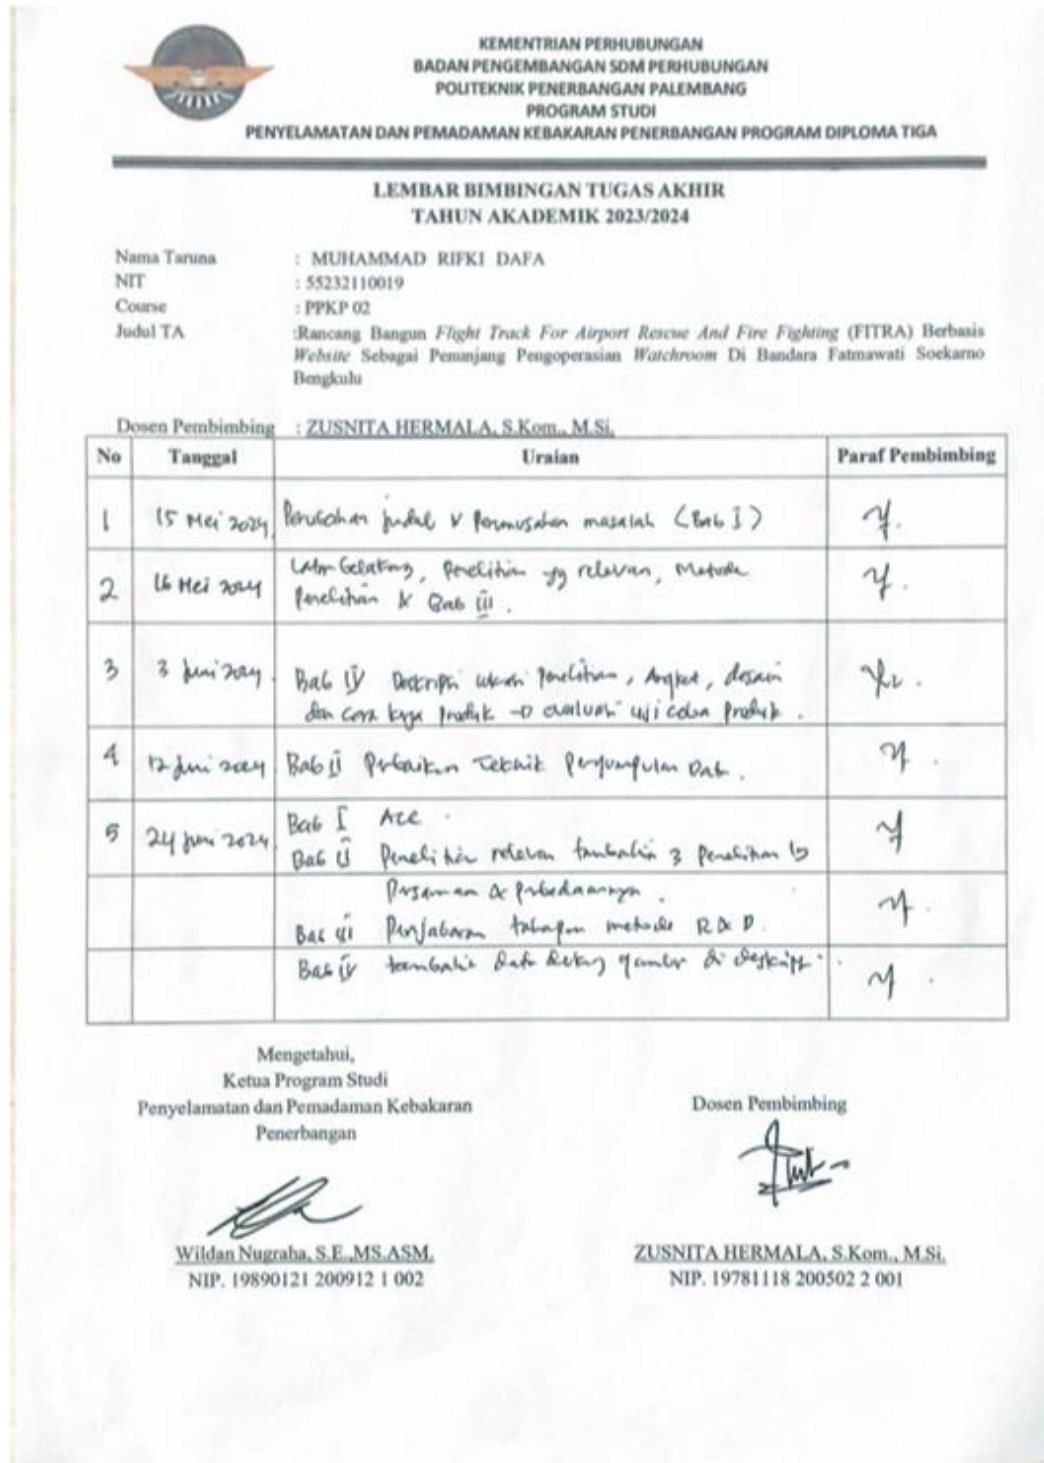 KEMENTRIAN PERHUBUNGAN
BADAN PENGEMBANGAN SDM PERHUBUNGAN
POLITEKNIK PENERBANGAN PALEMBANG
PROGRAM STUDI
PENYELAMATAN DAN PEMADAMAN KEBAKARAN PENERBANGAN PROGRAM DIPLOMA TIGA
LEMBAR BIMBINGAN TUGAS AKHIR
TAHUN AKADEMIK 2023/2024
Nama Taruna : MUHAMMAD RIFKI DAFA
NIT : 55232110019
Course : PPKP 02
Judul TA :Rancang Bangun Flight Track For Airport Rescue And Fire Fighting (FITRA) Berbasis
Website Sebagai Penunjang Pengoperasian Watchroom Di Bandara Fatmawati Soekarno
Bengkulu
Dosen Pembimbing : ZUSNITA HERMALA, S.Kom., M.Si.
No Tanggal Uraian Paraf Pembimbing
1 15 Mei 2024 Perubahan judul & Perumusahan masalah (Bab I)
2 16 Mei 2024 Latar belakang, Penelitian yg relevan, Metode
Penelitian & Bab III.
3 3 Juni 2024 Bab IV Deskripsi penelitian, Angket, desain
dan cara kerja produk → evaluasi uji coba produk.
4 12 Juni 2024 Bab II Perbaikan Teknik Pengumpulan Data.
5 24 Juni 2024 Bab I Acc.
Bab II Penelitian relevan tambahin 3 penelitian
Persamaan & perbedaannya.
Bab III Penjabaran tahapan metode R & D.
Bab IV tambahin data gambar di
Mengetahui,
Ketua Program Studi
Penyelamatan dan Pemadaman Kebakaran
Penerbangan
Dosen Pembimbing
Wildan Nugraha, S.E.,MS.ASM.
NIP. 19890121 200912 1 002
ZUSNITA HERMALA, S.Kom., M.Si.
NIP. 19781118 200502 2 001